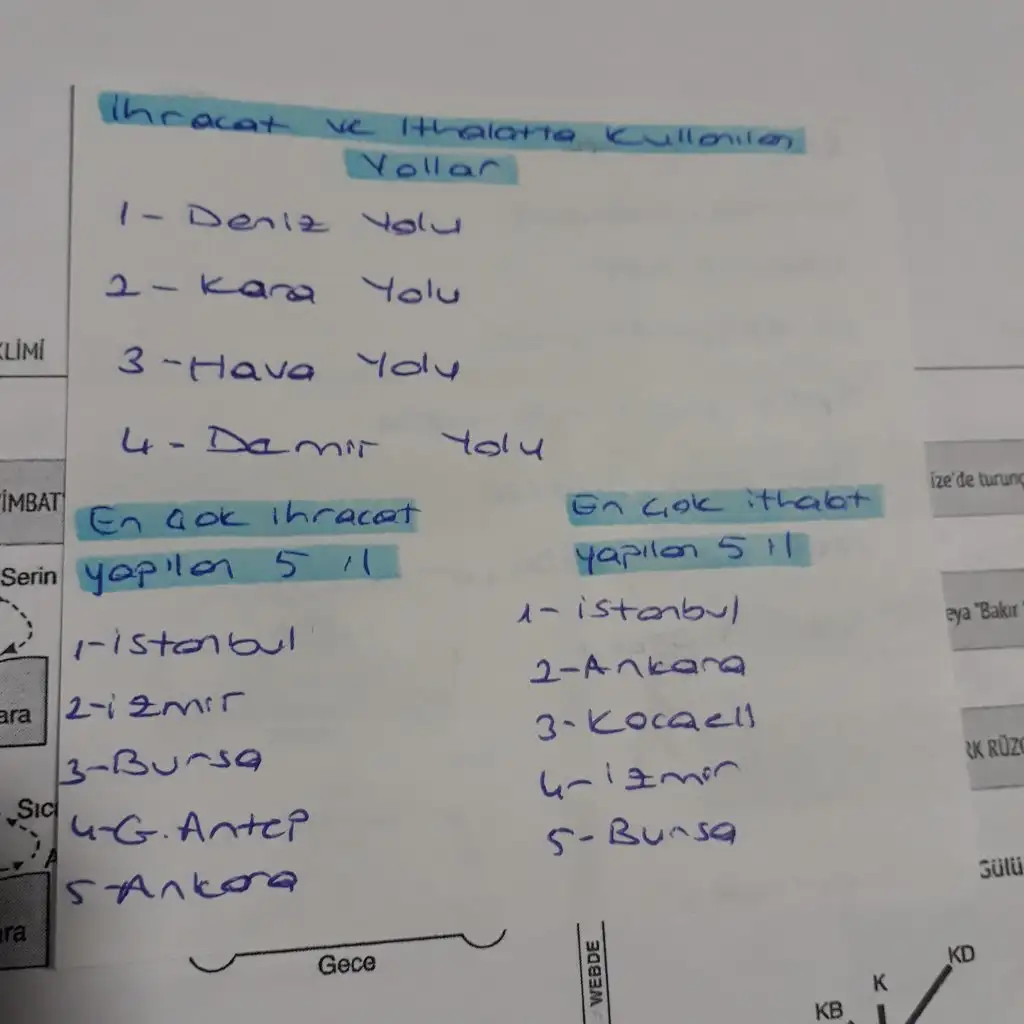 ihracat ve ithalatta kullanılan
Yollar
1- Deniz Yolu
2- Kara Yolu
3-Hava Yolu
4- Demir Yolu
En çok ihracat
yapılan 5 il
1-istanbul
2-izmir
3-Bursa
4-G.Antep
5-Ankara
En çok ithalat
yapılan 5 il
1- istanbul
2-Ankara
3-Kocaeli
4-izmir
5-Bursa
KLİMİ
İMBAT
Serin
ara
Sıc
A
ara
ize'de turunç
eya "Bakır
RK RÜZG
Gülü
Gece
WEBDE
KB
K
KD